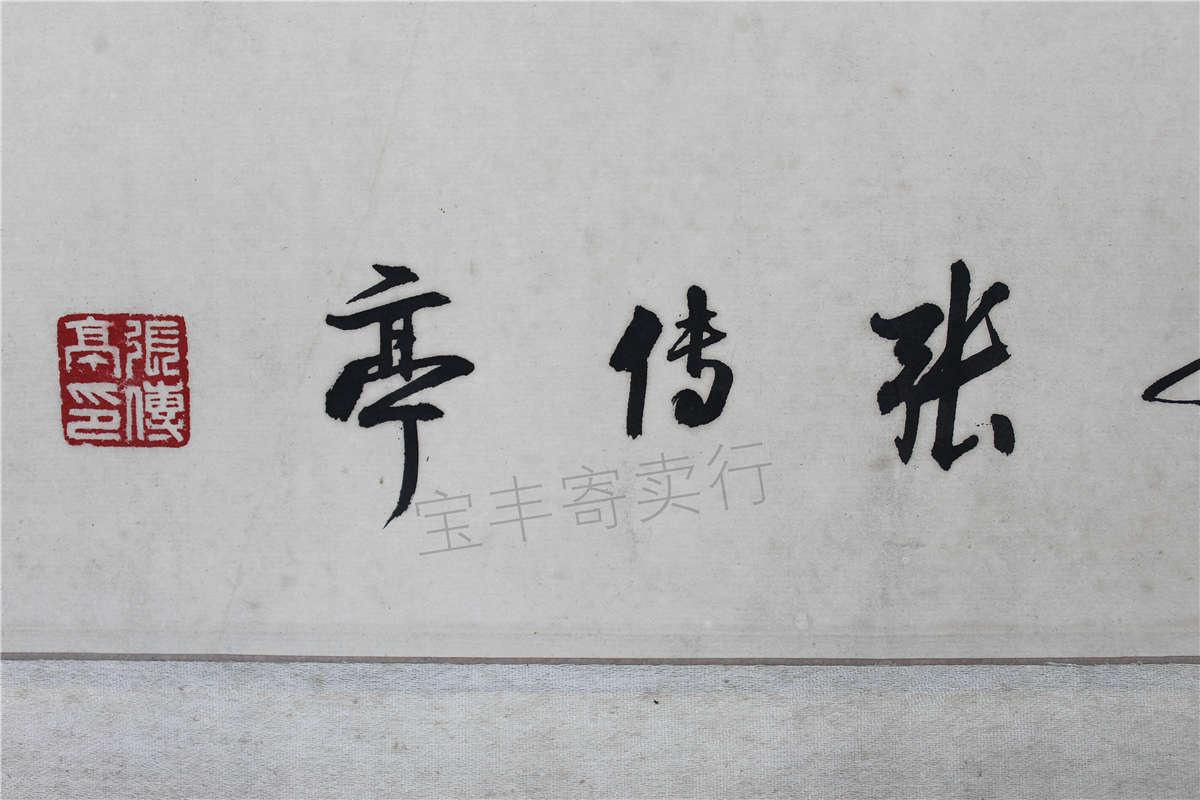 張傳亭
張傳亭印
宝丰寄卖行